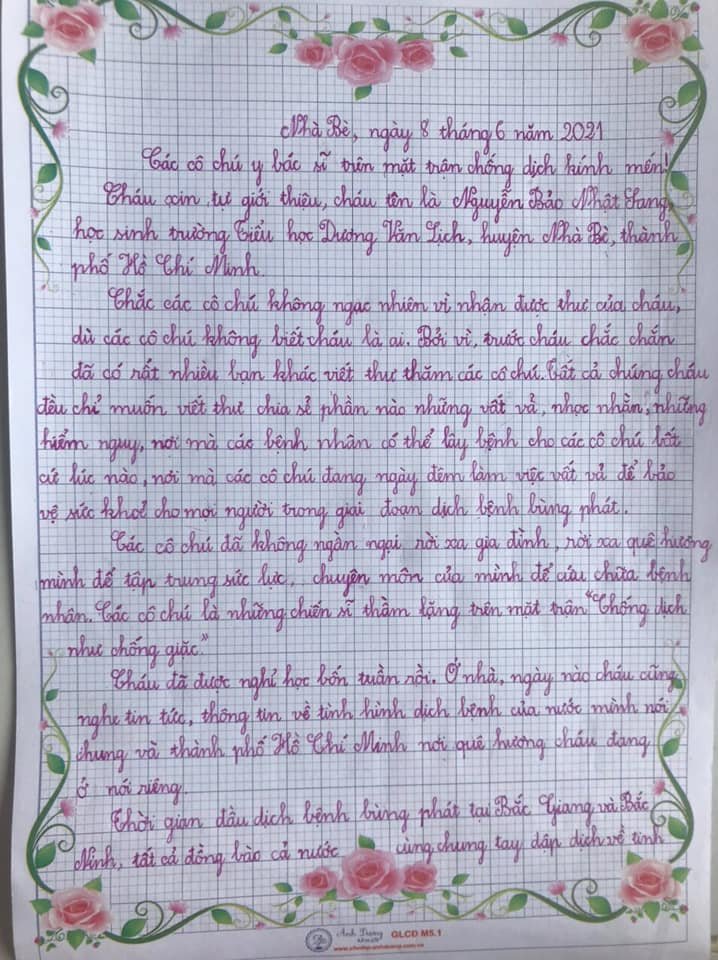 Nhà Bè, ngày 8 tháng 6 năm 2021
Các cô chú y bác sĩ trên mặt trận chống dịch kính mến!
Cháu xin tự giới thiệu, cháu tên là Nguyễn Bảo Nhật Sang,
học sinh trường Tiểu học Dương Văn Lịch, huyện Nhà Bè, thành
phố Hồ Chí Minh.
Chắc các cô chú không ngạc nhiên vì nhận được thư của cháu,
dù các cô chú không biết cháu là ai. Bởi vì, trước cháu chắc chắn
đã có rất nhiều bạn khác viết thư thăm các cô chú. Tất cả chúng cháu
đều chỉ muốn viết thư chia sẻ phần nào những vất vả, nhọc nhằn, những
hiểm nguy, nơi mà các bệnh nhân có thể lây bệnh cho các cô chú bất
cứ lúc nào, nơi mà các cô chú đang ngày đêm làm việc vất vả để bảo
vệ sức khoẻ cho mọi người trong giai đoạn dịch bệnh bùng phát.
Các cô chú đã không ngần ngại rời xa gia đình, rời xa quê hương
mình để tập trung sức lực, chuyên môn của mình để cứu chữa bệnh
nhân. Các cô chú là những chiến sĩ thầm lặng trên mặt trận "Chống dịch
như chống giặc."
Cháu đã được nghỉ học bốn tuần rồi. Ở nhà, ngày nào cháu cũng
nghe tin tức, thông tin về tình hình dịch bệnh của nước mình nói
chung và thành phố Hồ Chí Minh nơi quê hương cháu đang
ở nói riêng.
Thời gian đầu dịch bệnh bùng phát tại Bắc Giang và Bắc
Ninh, tất cả đồng bào cả nước cùng chung tay dập dịch về tinh
Ánh Dương GLCD M5.1